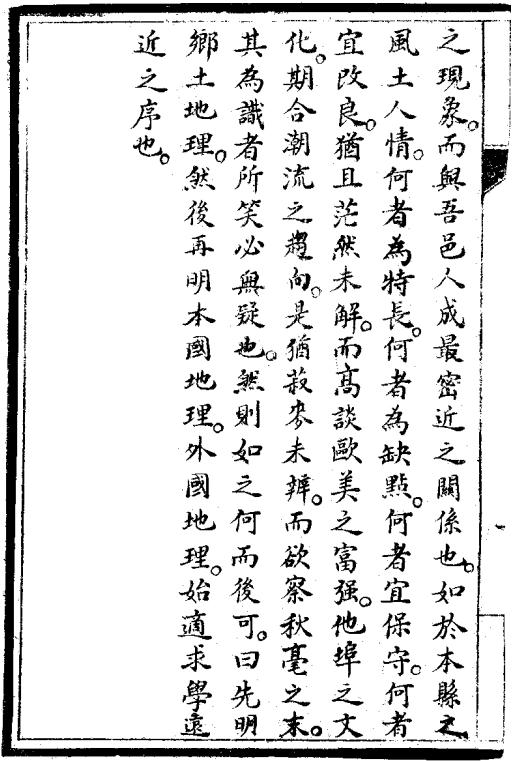 之現象。而與吾邑人成最密近之關係也。如於本縣之
風土人情。何者為特長。何者為缺點。何者宜保守。何者
宜改良。猶且茫然未解。而高談歐美之富强。他埠之文
化。期合潮流之趨向。是猶菽麥未辨。而欲察秋毫之末。
其為識者所笑必無疑也。然則如之何而後可。曰先明
鄉土地理。然後再明本國地理。外國地理。始適求學遠
近之序也。